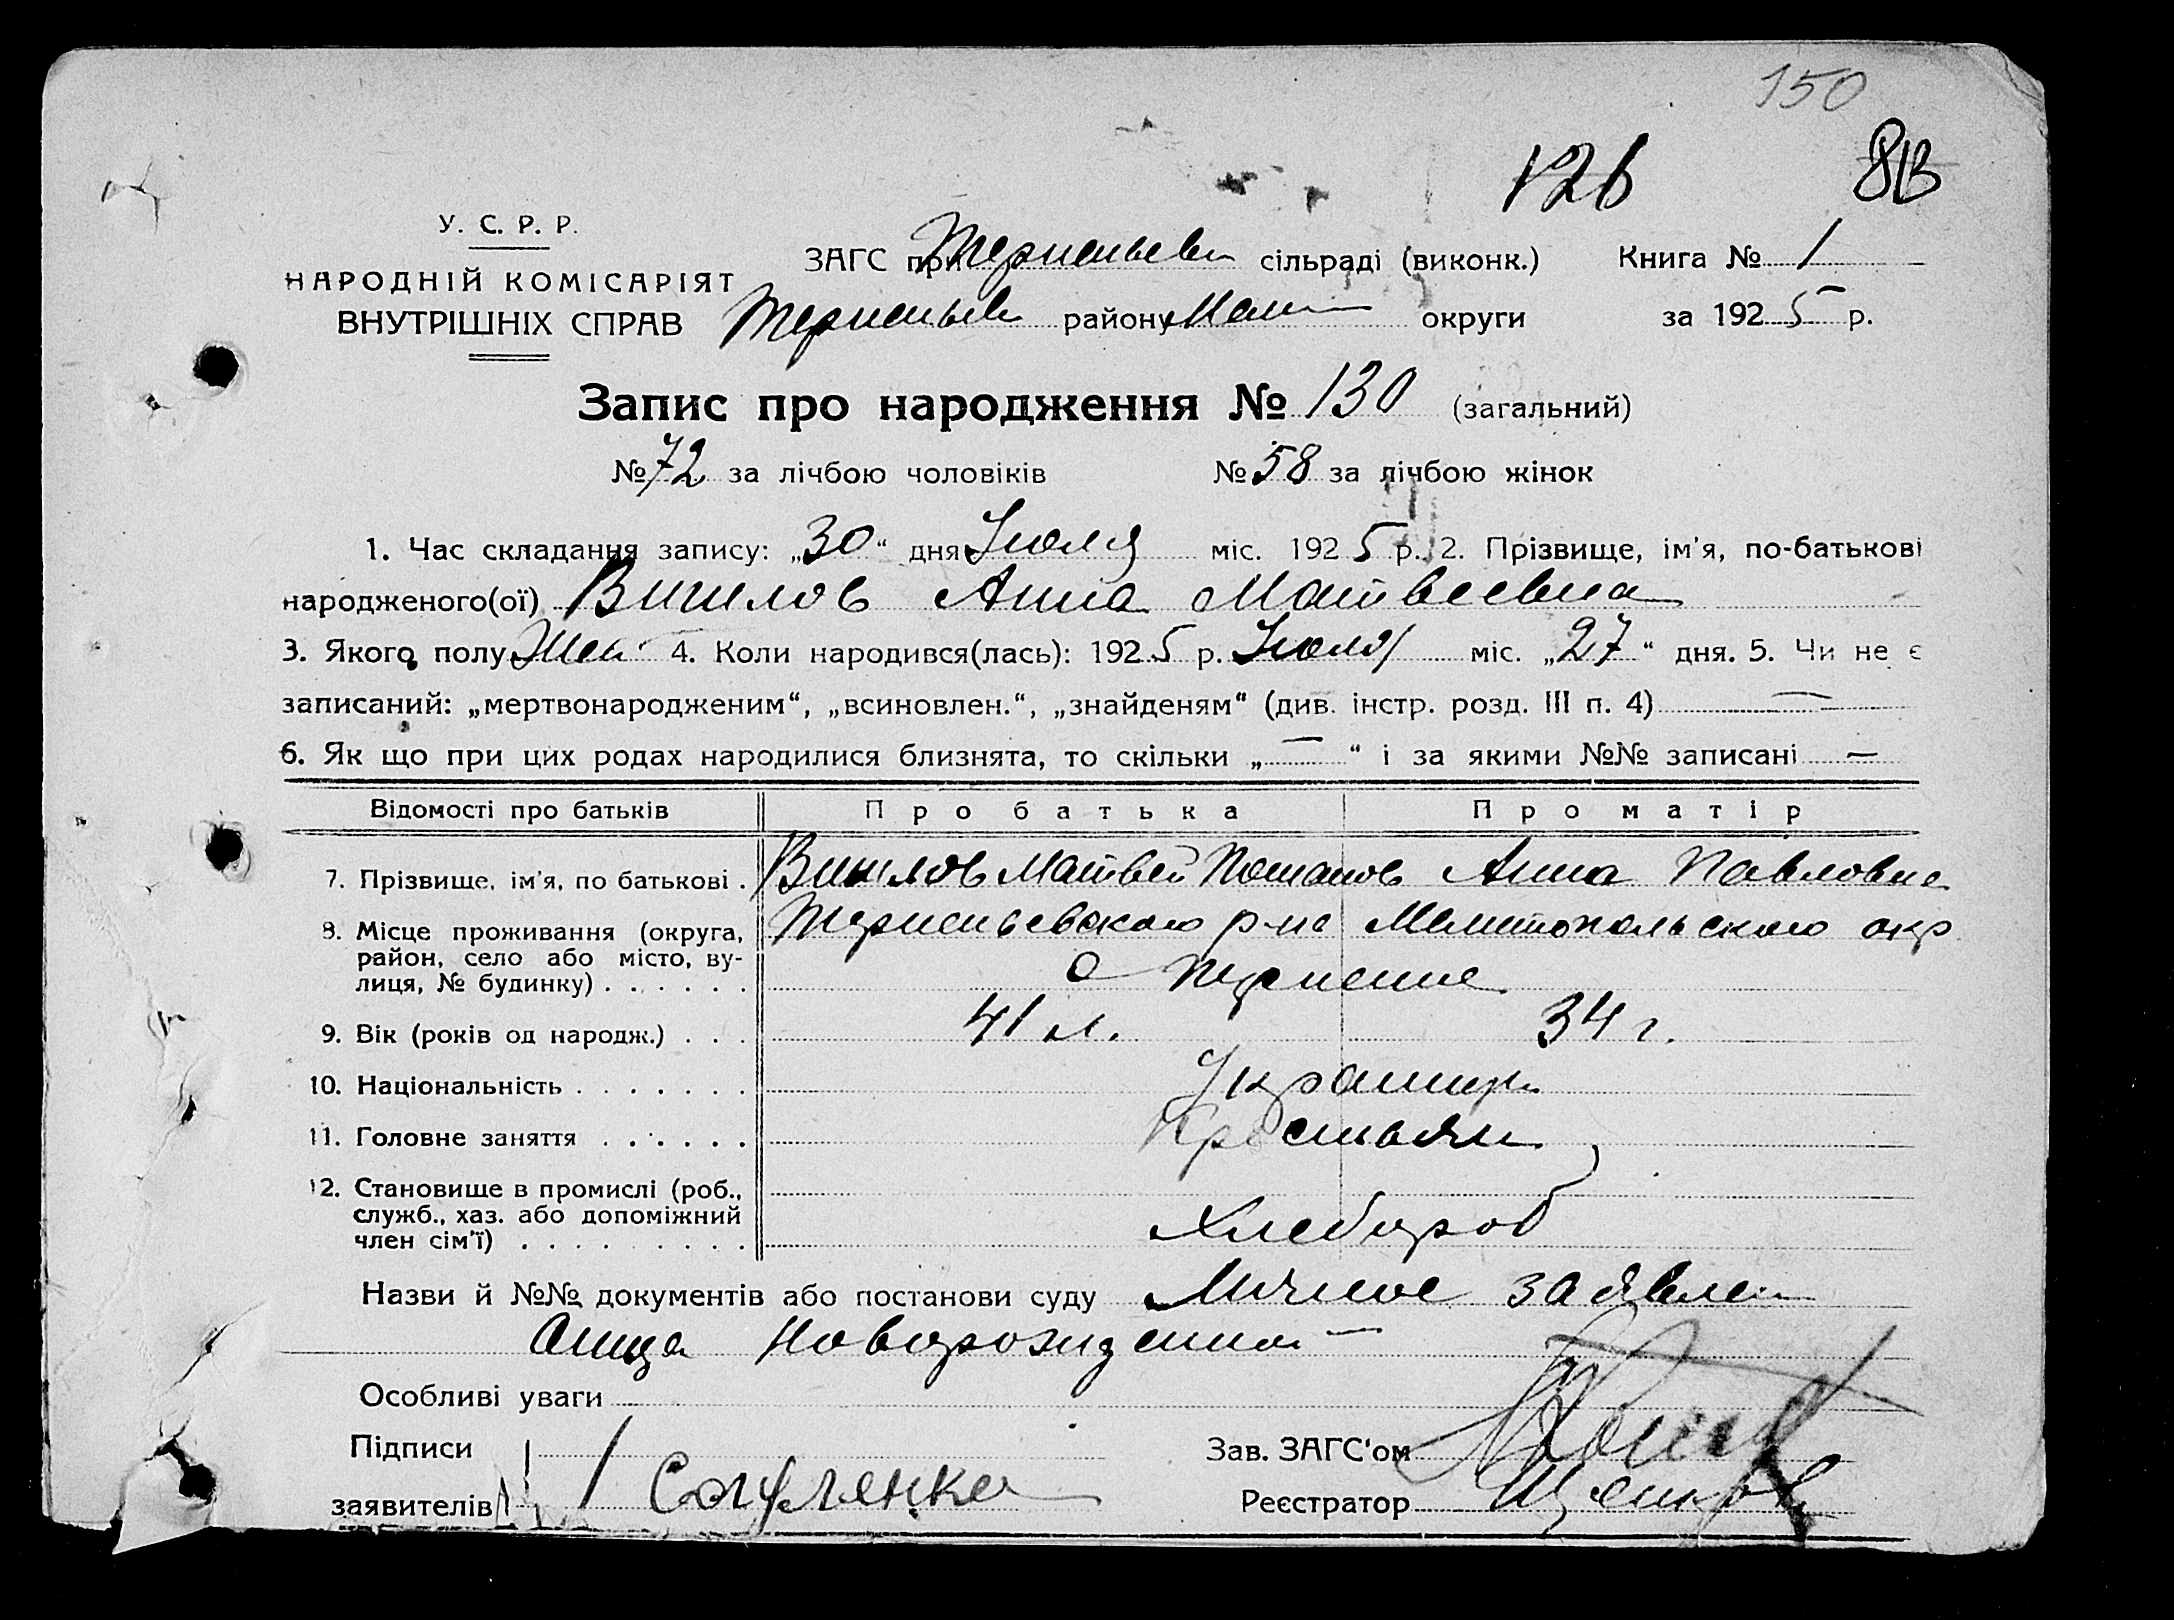 150
126 8В
У. С. Р. Р.
НАРОДНІЙ КОМІСАРІЯТ
ВНУТРІШНІХ СПРАВ
ЗАГС при сільраді (виконк.) Книга № 1
району Мел округи за 1925 р.
Запис про народження № 130 (загальний)
№ 72 за лічбою чоловіків № 58 за лічбою жінок
1. Час складання запису: „30“ дня Июля міс. 1925 р. 2. Прізвище, ім'я, по-батькові
народженого(ої) Анна Матвеевна
3. Якого полу Жен 4. Коли народився(лась): 1925 р. Июля міс. „27“ дня. 5. Чи не є
записаний: „мертвонародженим“, „всиновлен.“, „знайденям“ (див. інстр. розд. III п. 4) —
6. Як що при цих родах народилися близнята, то скільки „—“ і за якими №№ записані —
Відомості про батьків Про батька Про матір
7. Прізвище, ім'я, по батькові . Матвей Анна Павловна
8. Місце проживання (округа, район, село або місто, вулиця, № будинку) . . . . . . р-на Мелитопольского окр
с
9. Вік (років од народж.) . . . 41 л. 34 г.
10. Національність . . . . . . . Украинцы
11. Головне заняття . . . . . . Крестьян
12. Становище в промислі (роб., служб., хаз. або допоміжний член сім'ї) . . . . . . . . . Хлебороб
Назви й №№ документів або постанови суду Личное заявлен
отца Новорожденной
Особливі уваги
Підписи
заявителів
Зав. ЗАГС'ом
Реєстратор